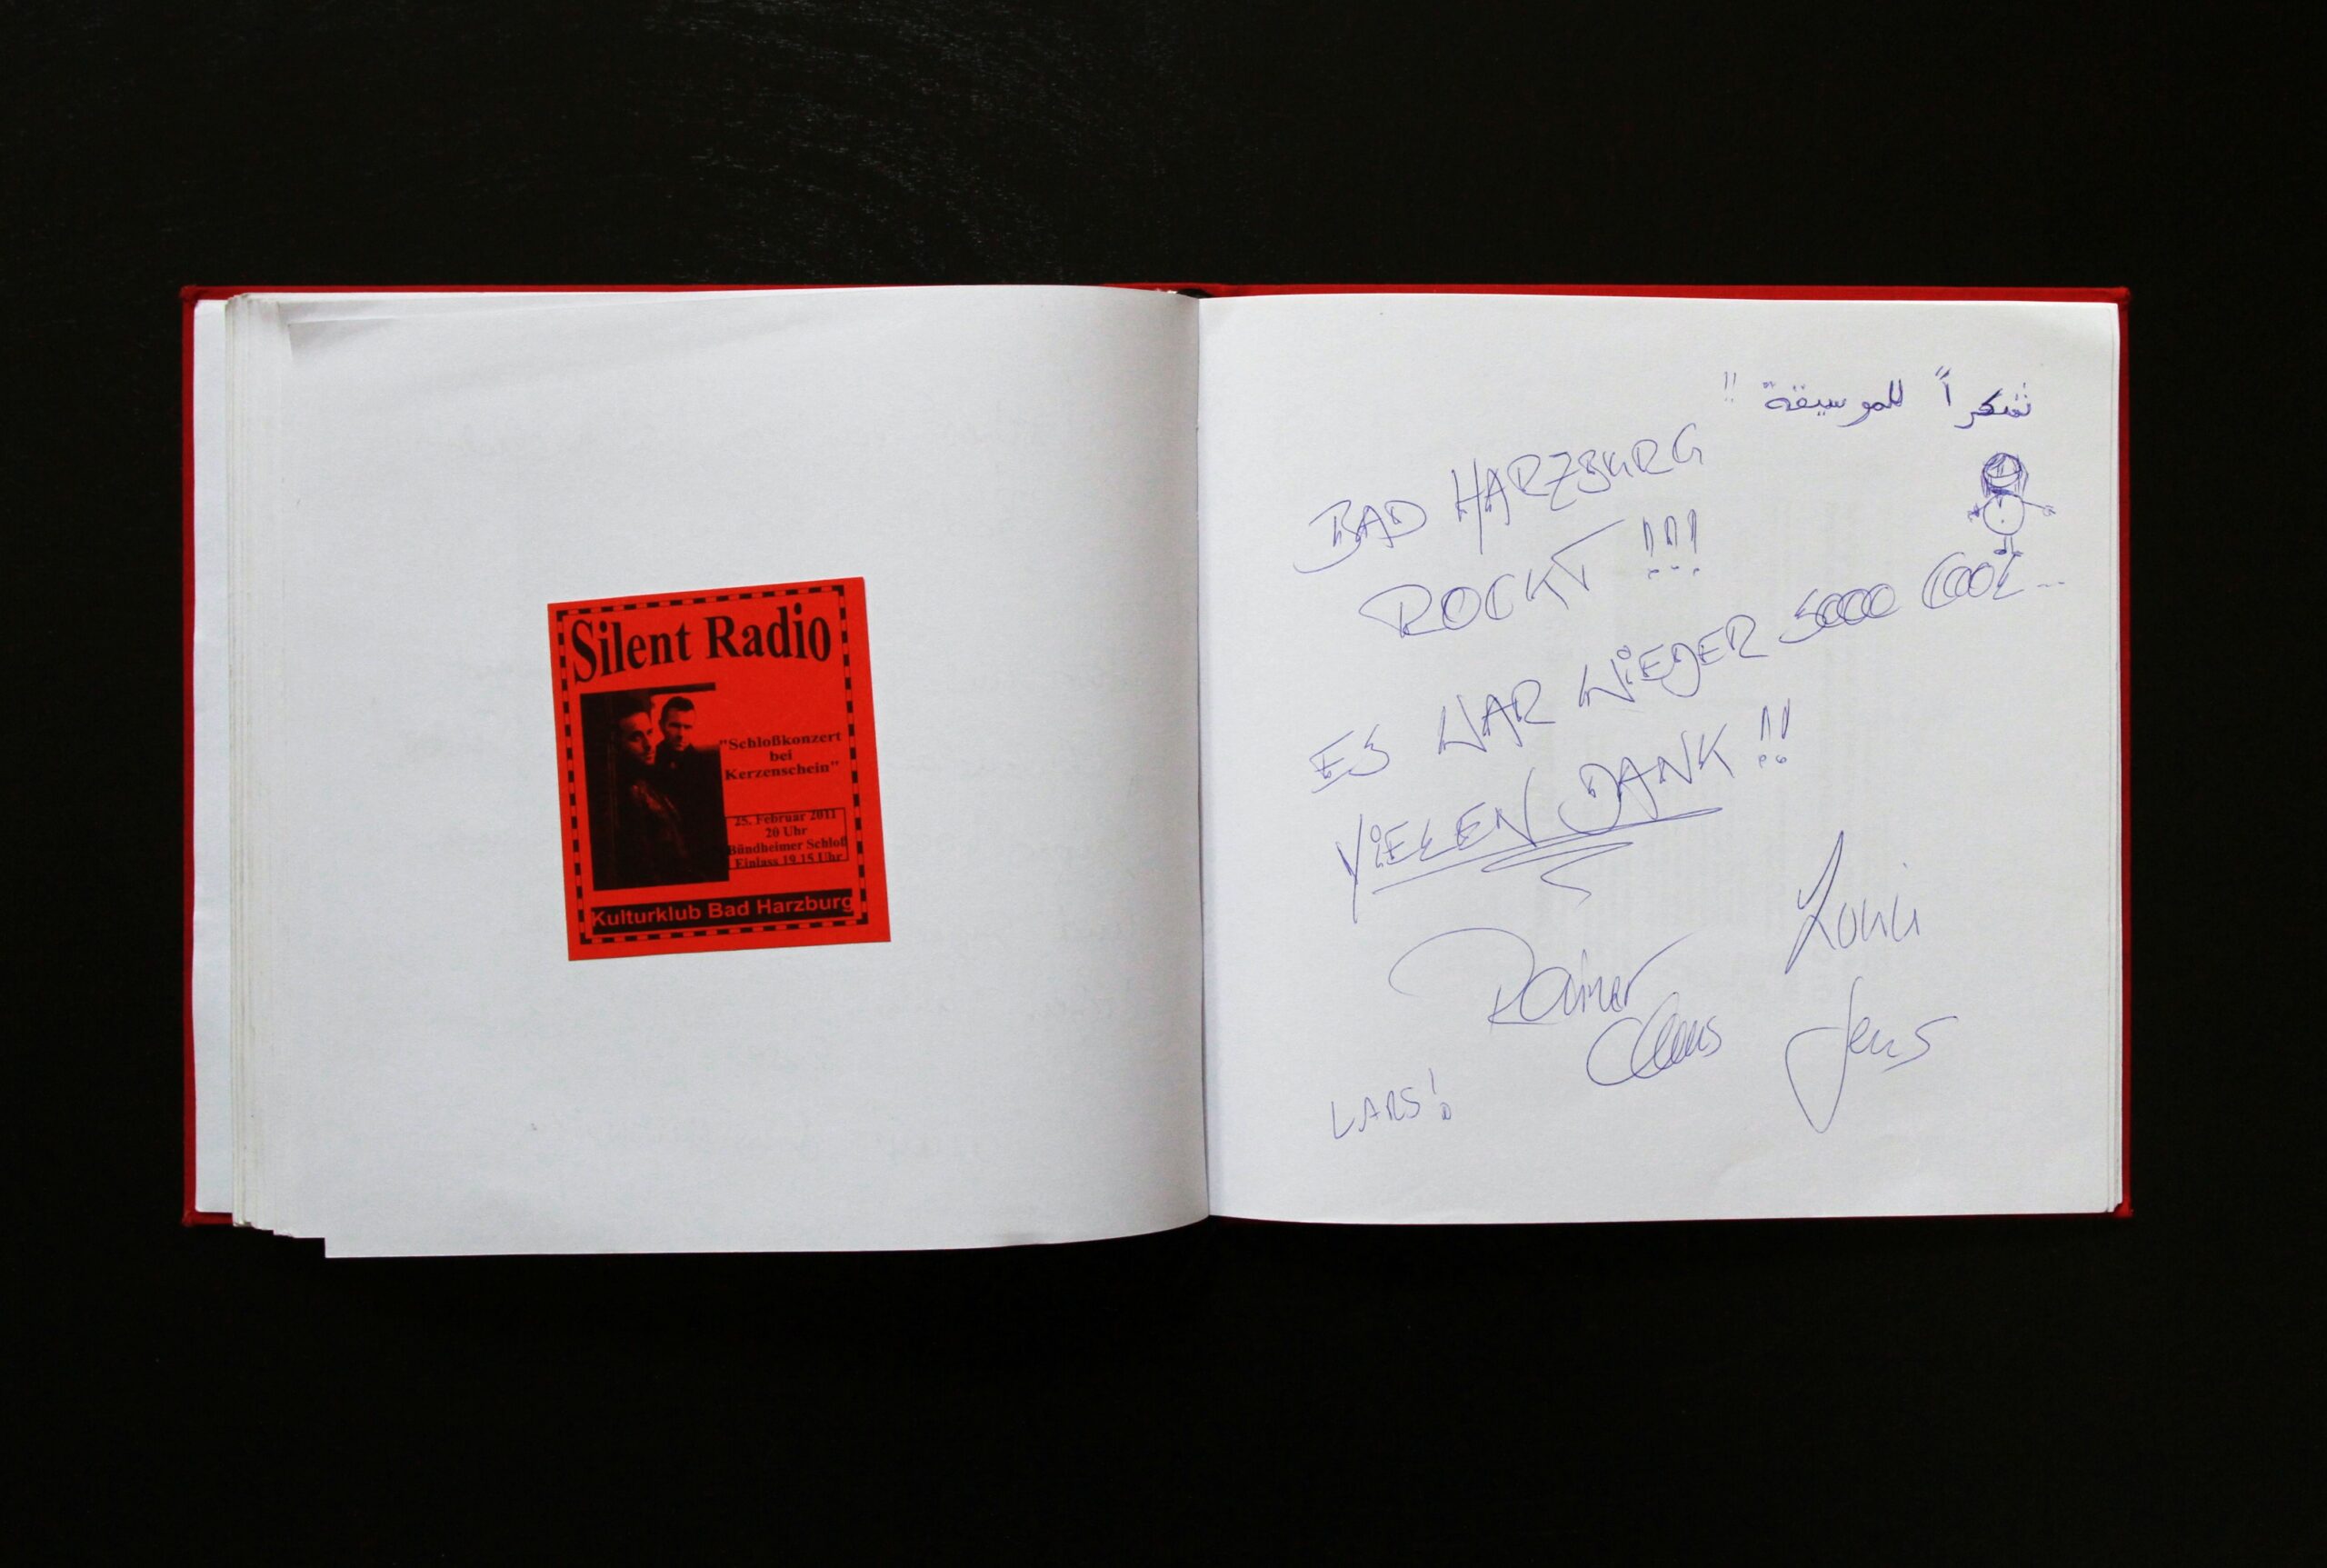 Silent Radio
"Schloßkonzert
bei
Kerzenschein"
25. Februar 2011
20 Uhr
Bündheimer Schloß
Einlass 19.15 Uhr
Kulturklub Bad Harzburg
شكراً للموسيقة !!
BAD HARZBURG
ROCKT !!!
ES WAR WIEDER SOOO COOL...
VIELEN DANK !!
Rainer
Claus
Jens
LARS!